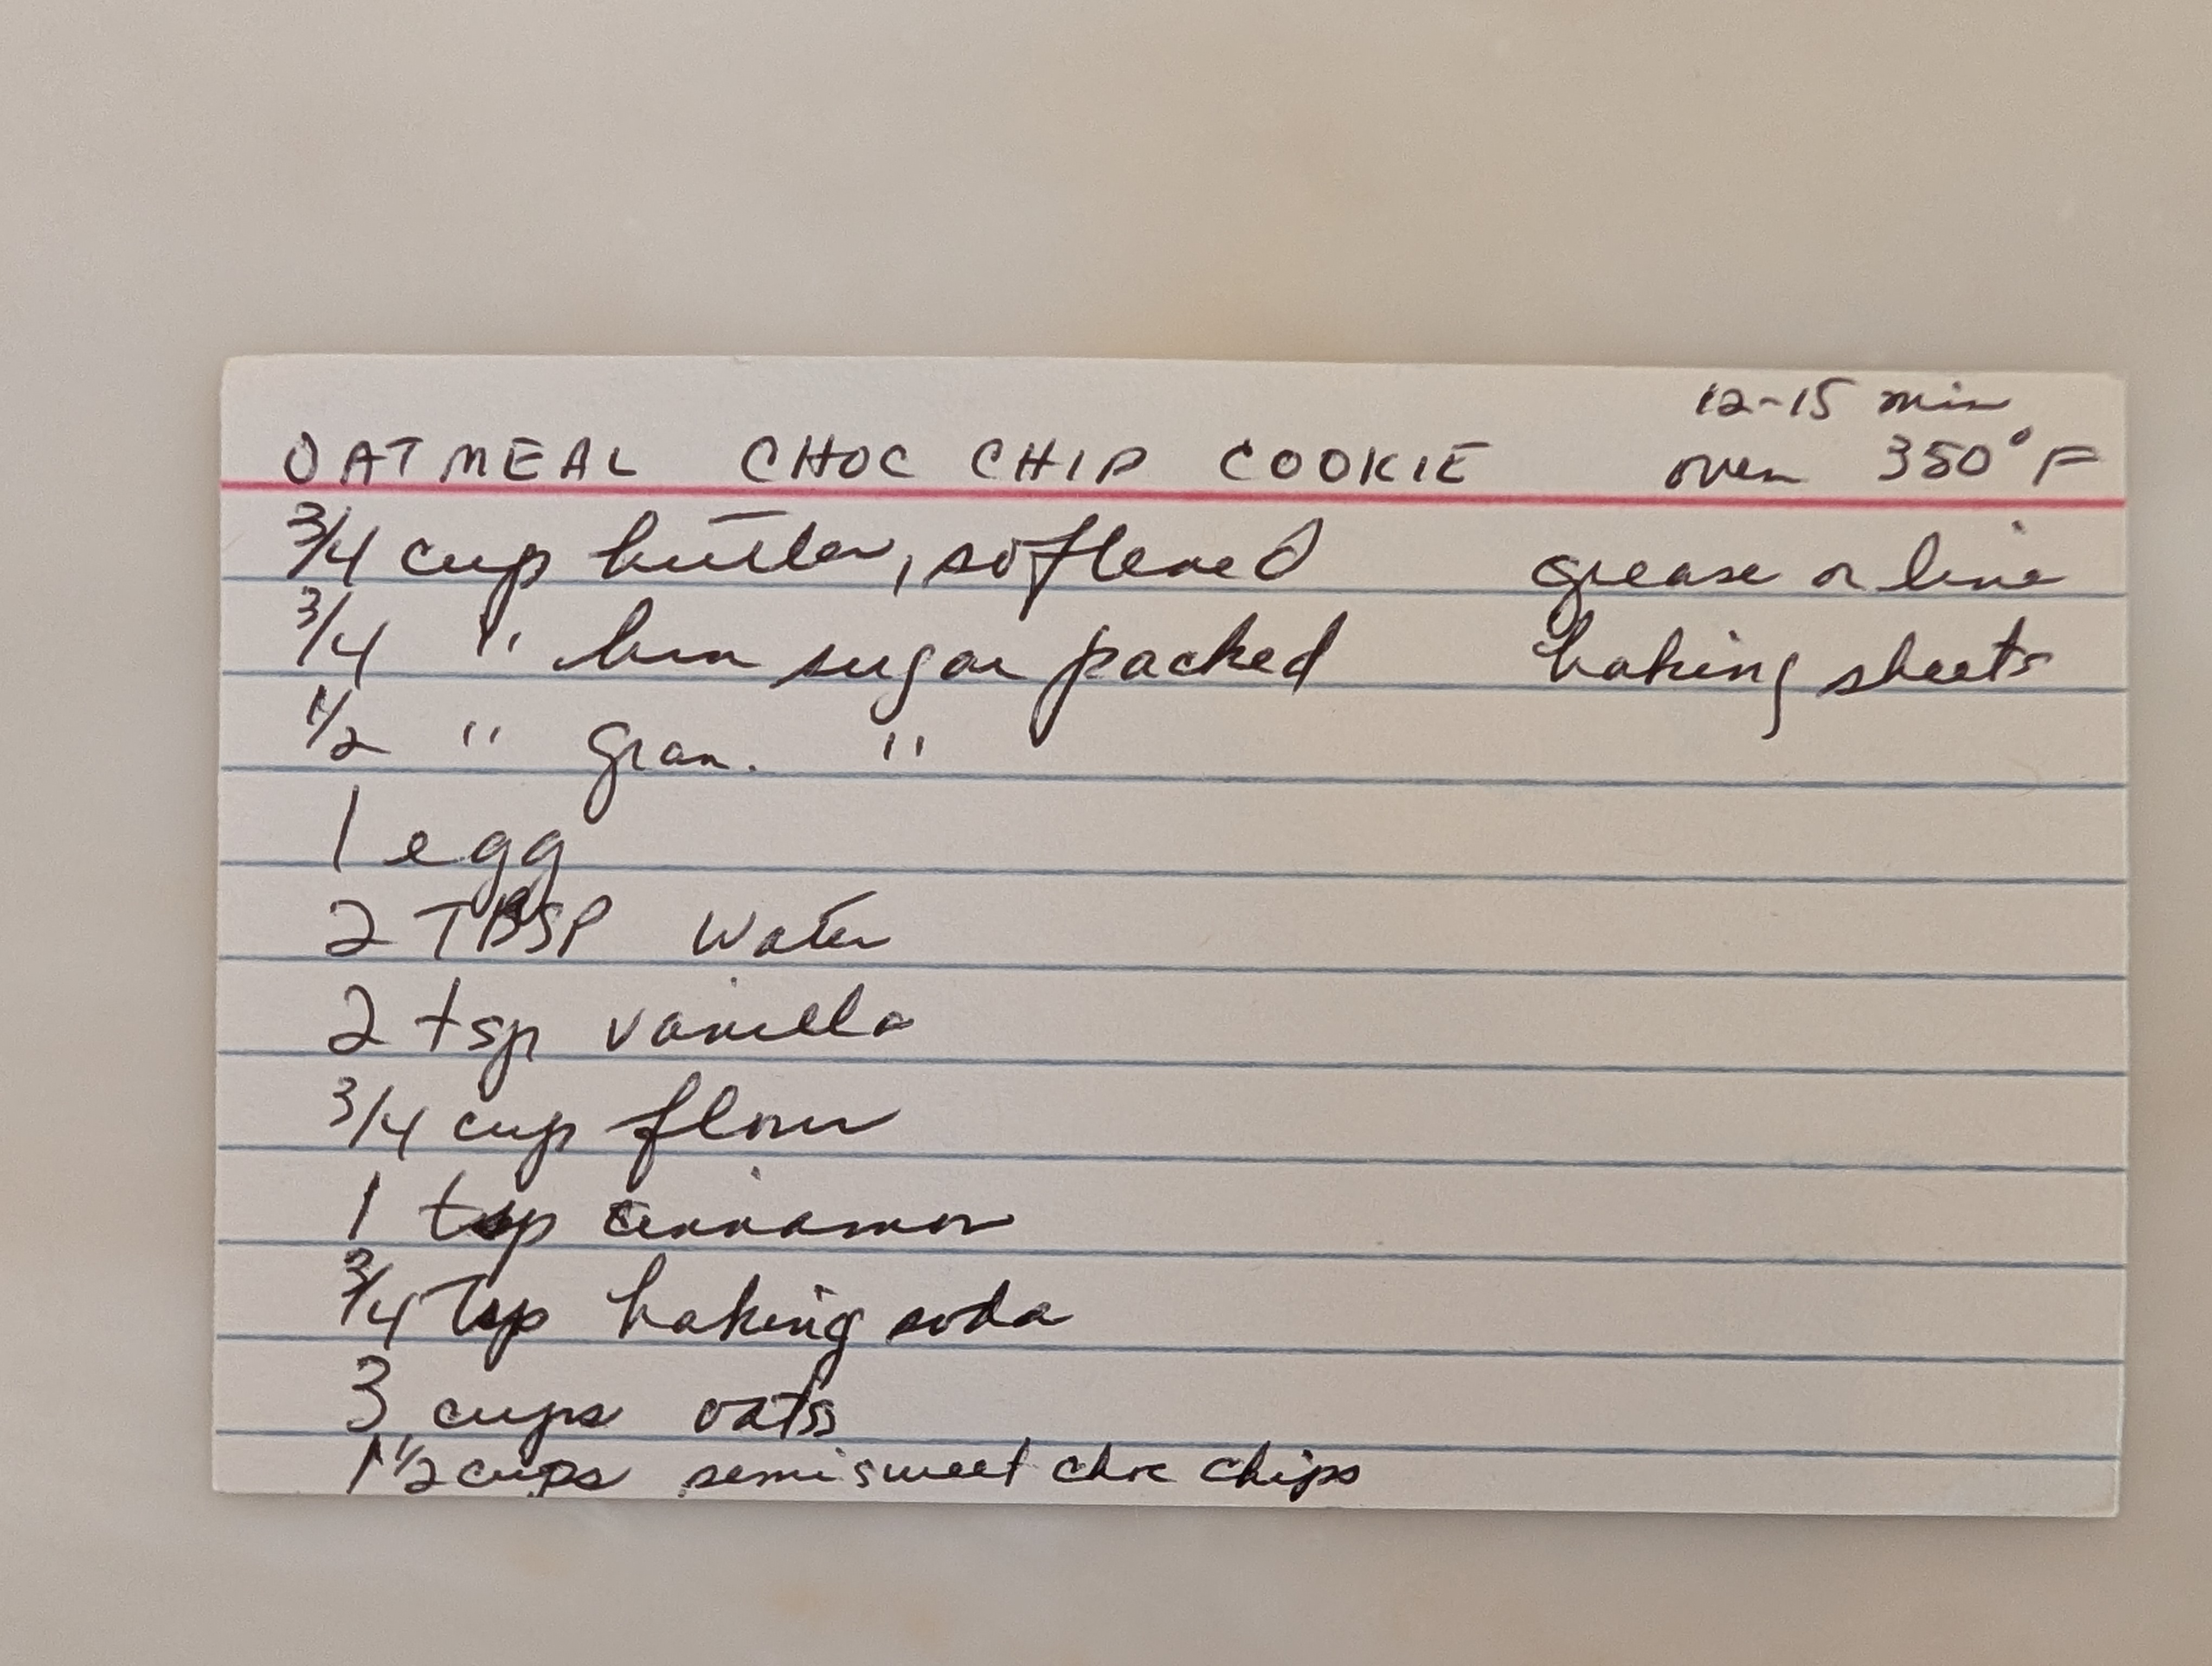 12-15 min
OATMEAL CHOC CHIP COOKIE oven 350°F
3/4 cup butter, softened grease or line
3/4 " brn sugar packed baking sheets
1/2 " gran. "
1 egg
2 TBSP water
2 tsp vanilla
3/4 cup flour
1 tsp cinnamon
3/4 tsp baking soda
3 cups oats
1 1/2 cups semisweet choc chips